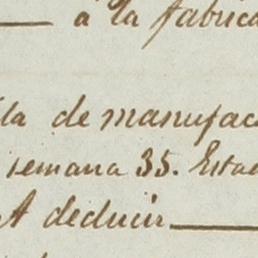 à la fabrica
la de manufac
semana 35. Estad
A deducir